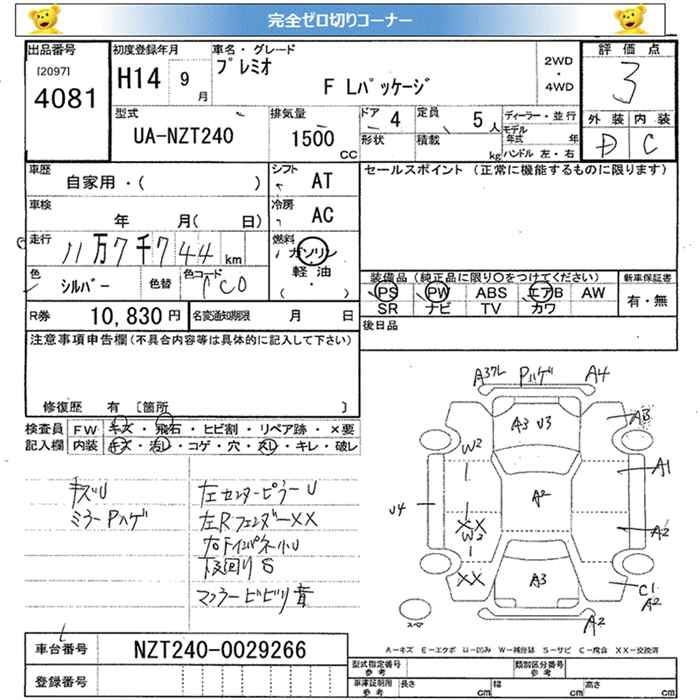 完全ゼロ切りコーナー
出品番号
[2097]
4081
初度登録年月
H14 9 月
車名・グレード
プレミオ
F Lパッケージ
2WD
・
4WD
評価点
3
外装 内装
D C
型式
UA-NZT240
排気量
1500 CC
ドア 4
形状
定員 5 人
積載 kg
ディーラー・並行
モデル年式 年
ハンドル 左・右
車歴
自家用・( )
シフト AT
車検
年 月( 日)
冷房 AC
走行
11万7千744 km
燃料
ガソリン
軽油
( ・ )
色 シルバー
色替
色コード 1C0
R券 10,830円
名変通知期限 月 日
セールスポイント (正常に機能するものに限ります)
装備品 (純正品に限り〇をつけてください)
PS PW ABS エアB AW
SR ナビ TV カワ
新車保証書
有・無
後日品
注意事項申告欄(不具合内容等は具体的に記入して下さい)
修復歴 有 [箇所 ]
検査員 FW キズ・飛石・ヒビ割・リペア跡・×要
記入欄 内装 キズ・汚レ・コゲ・穴・スレ・キレ・破レ
キズU
ミラーPハゲ
左センターピラーU
左RフェンダーXX
右ドインパネ小U
下回りS
マフラービビリ音
A3アレ Pハゲ A4
A3 U3
A3
W2
A1
U4
A2
XX
W3
A2
XX
A3
C1
A2
A2
スペア
A-キズ E-エクボ U-凹み W-補修跡 S-サビ C-腐食 XX-交換済
車台番号 NZT240-0029266
登録番号
型式指定番号
参考
類別区分番号
参考
車庫証明用
参考
長さ cm 幅 cm 高さ cm